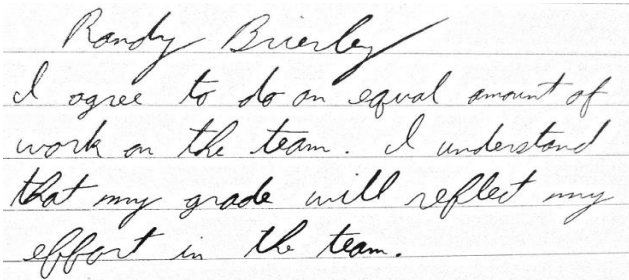 Randy Brierley
I agree to do an equal amount of
work on the team. I understand
that my grade will reflect my
effort in the team.